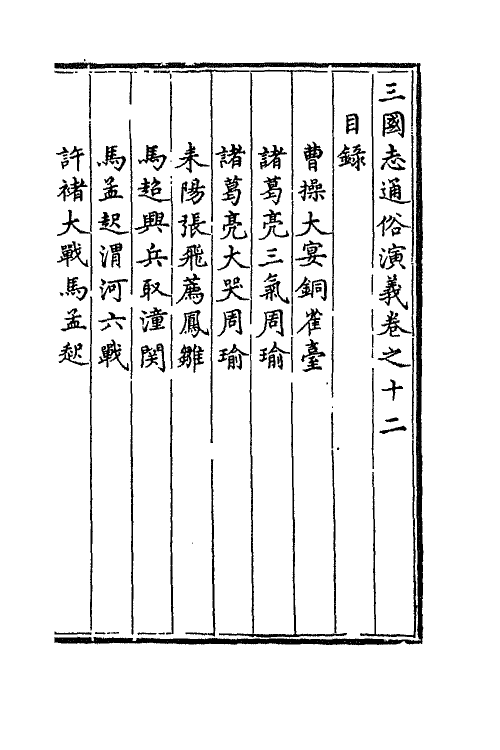 三國志通俗演義卷之十二
目録
曹操大宴銅雀臺
諸葛亮三氣周瑜
諸葛亮大哭周瑜
耒陽張飛薦鳳雛
馬超興兵取潼関
馬孟起渭河六戰
許褚大戰馬孟起